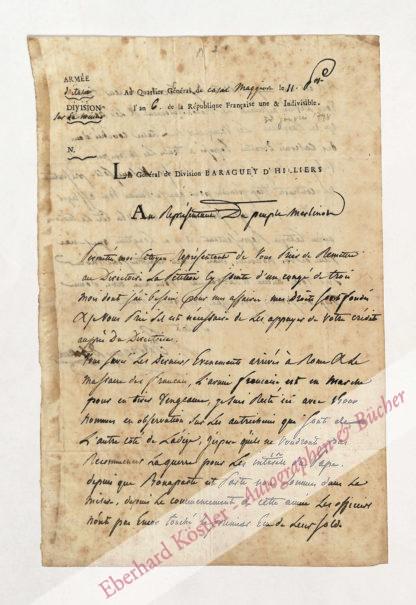 ARMÉE
d'italie
Au Quartier Général de casal Maggiore le 11.
DIVISION
l'an 6. de la République Française une & Indivisible.
N.
Le Général de Division BARAGUEY D'HILLIERS
Au Représentant Du peuple Merlino
Permettés moi Citoyen Représentant de Vous Prier de Remettre
au Directoire La Pétition Cy jointe d'un congé de trois
mon dont j'ai besoin pour mes affaires. mes Droits sont fondés
& Vous Prie s'il est nécessaire de Les appuyer de Votre crédit
auprès Du Directoire.
Vous savés Les Derniers Evenements arrivés à Rome & Le
Massacre des français, L'armée française est en Marche
pour en tirer Vengeance, je suis Resté ici avec
hommes en observation sur Les autrichiens qui sont de
L'autre côté de Ladige, jusqu'à qu'ils ne Voudront pas
Recommencer La guerre pour Les intérêts du Pape.
depuis que Bonaparte est Parti nous sommes dans La
misère, depuis Le commencement de cette année Les officiers
n'ont pas Encor touché Le premier Ecu de Leur Solde
Eberhard Köstler - Autographen & Bücher